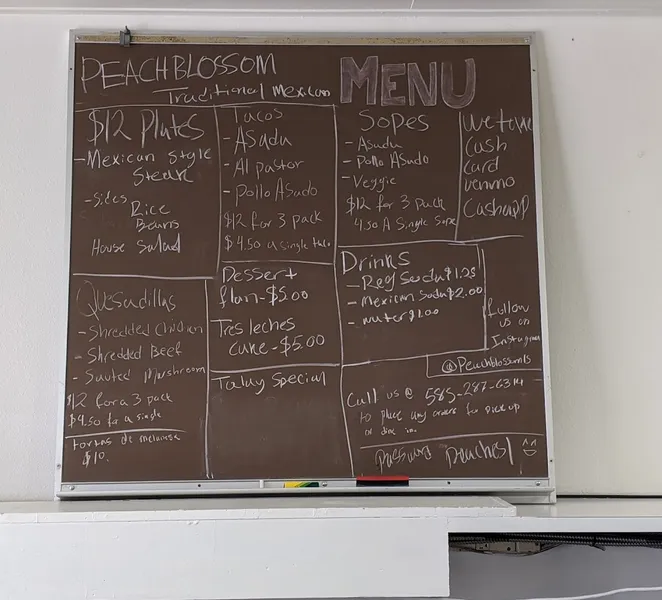 PEACHBLOSSOM
Traditional Mexican
MENU
$12 Plates
- Mexican Style
Steak
- Sides
Rice
Beans
House Salad
Tacos
- Asada
- Al pastor
- Pollo Asado
$12 for 3 pack
$4.50 a single taco
SOPES
- Asada
- Pollo Asado
- Veggie
$12 for 3 pack
4.50 A Single Sope
we take
Cash
Card
venmo
Cashapp
Quesadillas
- Shredded Chicken
- Shredded Beef
- Sauted Mushroom
$12 for a 3 pack
$4.50 for a single
tortas de milanesa
$10.
Dessert
flan - $5.00
Tres leches
cake - $5.00
Today Special
Drinks
- Reg Soda $1.25
- Mexican Soda $2.00
- water $1.00
follow
us on
Instagram
@Peachblossom
Call us @ 585-287-6314
to place any orders for pick up
or dine in.
Password Peaches1